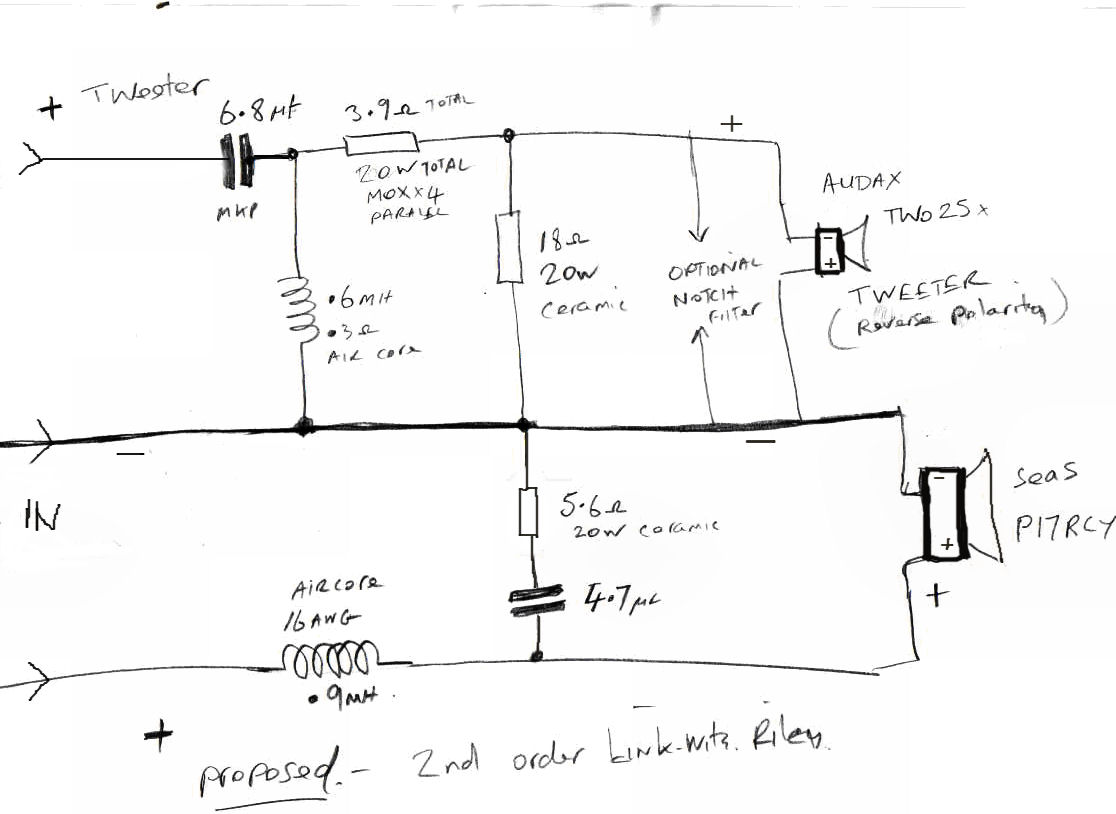 + TWeeter
6.8µF
3.9Ω TOTAL
20W TOTAL
MOX X 4
PARALEL
MKP
+
AUDAX
TWO25x
-
+
TWEETER
(Reverse Polarity)
18Ω
20W
ceramic
OPTIONAL
NOTCH
FILTER
.6MH
.3Ω
AIR CORE
-
-
IN
5.6Ω
20W ceramic
-
+
seas
P17RCY
+
AIRCORE
16AWG
4.7µ
.9MH.
+
proposed.- 2nd order Link-witz. Riley.